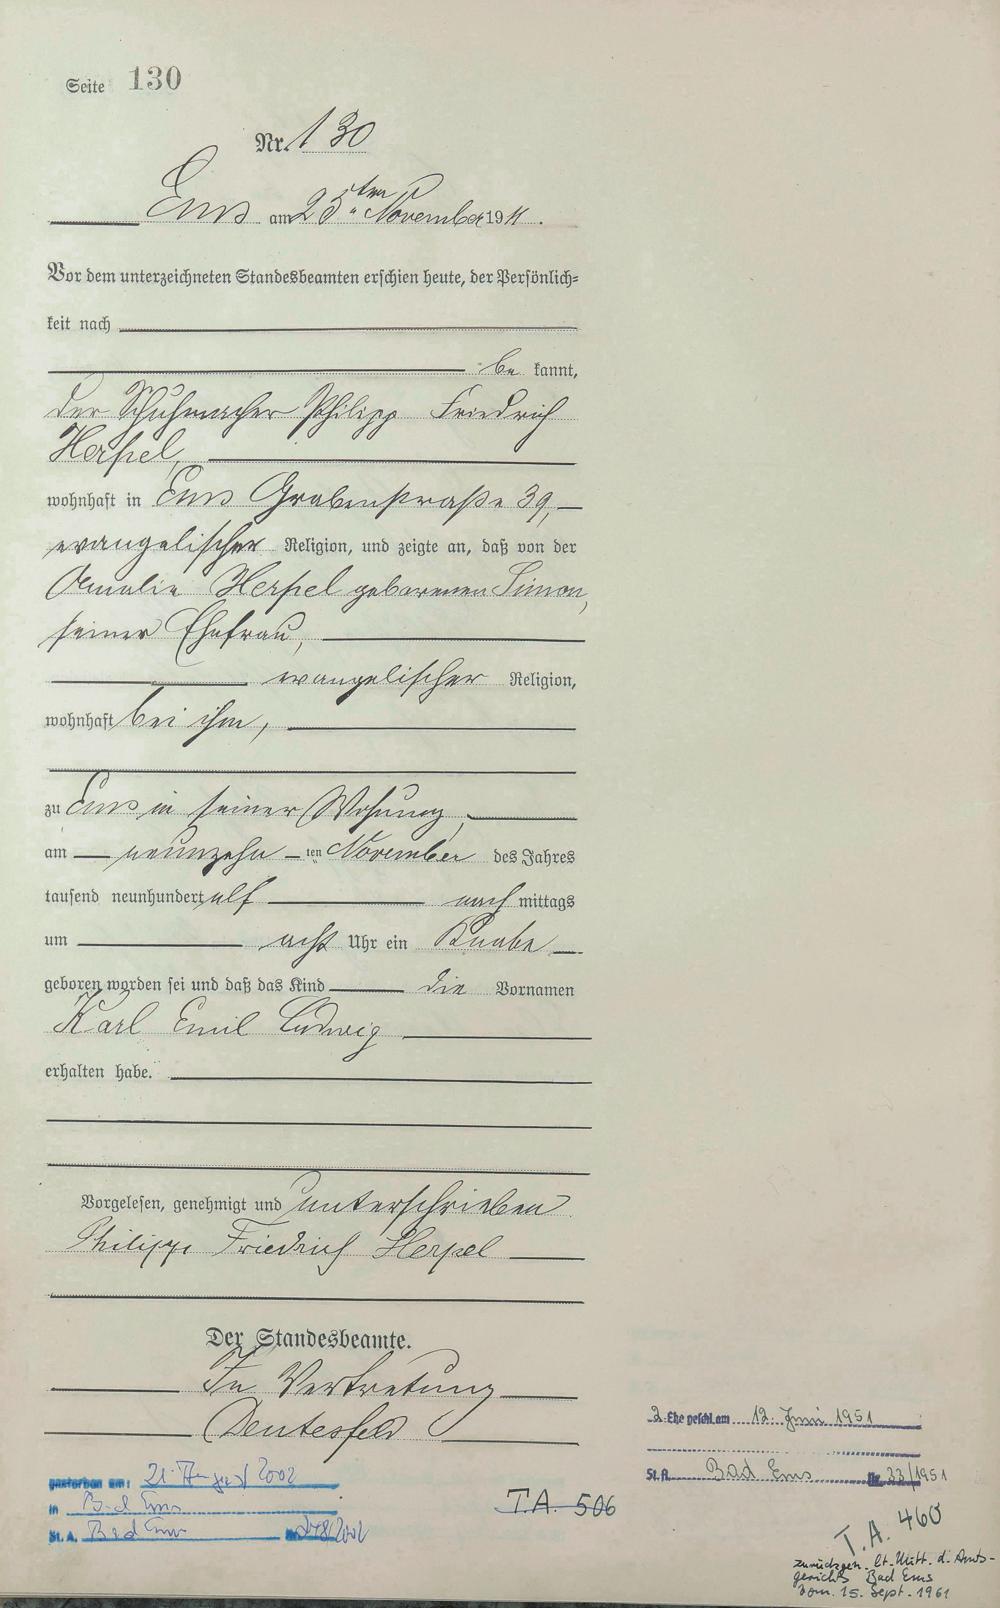 Seite 130
Nr. 130
Ems am 25ten November 1911.
Vor dem unterzeichneten Standesbeamten erschien heute, der Persönlich-
keit nach
be kannt,
der Schuhmacher Philipp Friedrich
Herpel,
wohnhaft in Ems Grabenstraße 39,
evangelischer Religion, und zeigte an, daß von der
Amalie Herpel geborenen Simon,
seiner Ehefrau,
evangelischer Religion,
wohnhaft bei ihm,
zu Ems in seiner Wohnung,
am neunzehn ten November des Jahres
tausend neunhundert elf nach mittags
um acht Uhr ein Knabe
geboren worden sei und daß das Kind die Vornamen
Karl Emil Ludwig
erhalten habe.
Vorgelesen, genehmigt und unterschrieben
Philipp Friedrich Herpel
Der Standesbeamte.
In Vertretung
gestorben am: 21. August 2002
in Bad Ems
St. A. Bad Ems Nr. 248/2002
T.A. 506
2. Ehe geschl. am 12. Juni 1951
St. A. Bad Ems Nr. 33/1951
T.A. 460
zurückgen. lt. Mitt. d. Amts-
gerichts Bad Ems
vom 15. Sept. 1961